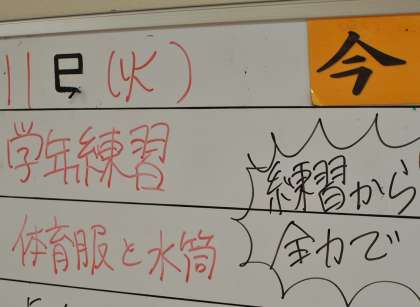 11日(火)
今
学年練習
練習から
体育服と水筒
全力で